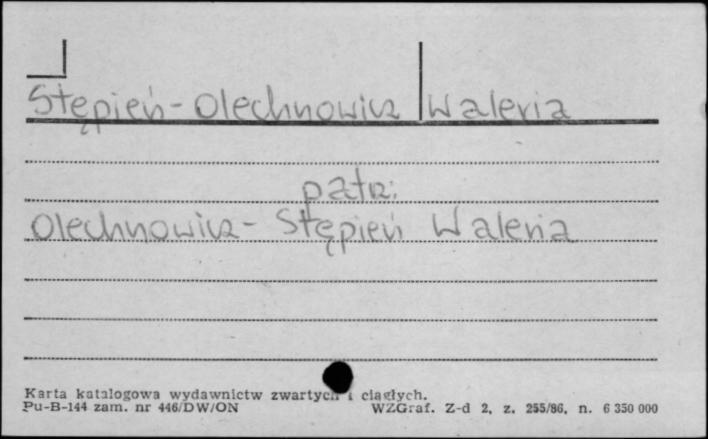 Stępień-Olechnowicz Waleria
patrz:
Olechnowicz-Stępień Waleria
Karta katalogowa wydawnictw zwartych i ciągłych.
Pu-B-144 zam. nr 446/DW/ON WZGraf. Z-d 2, z. 255/86, n. 6 350 000